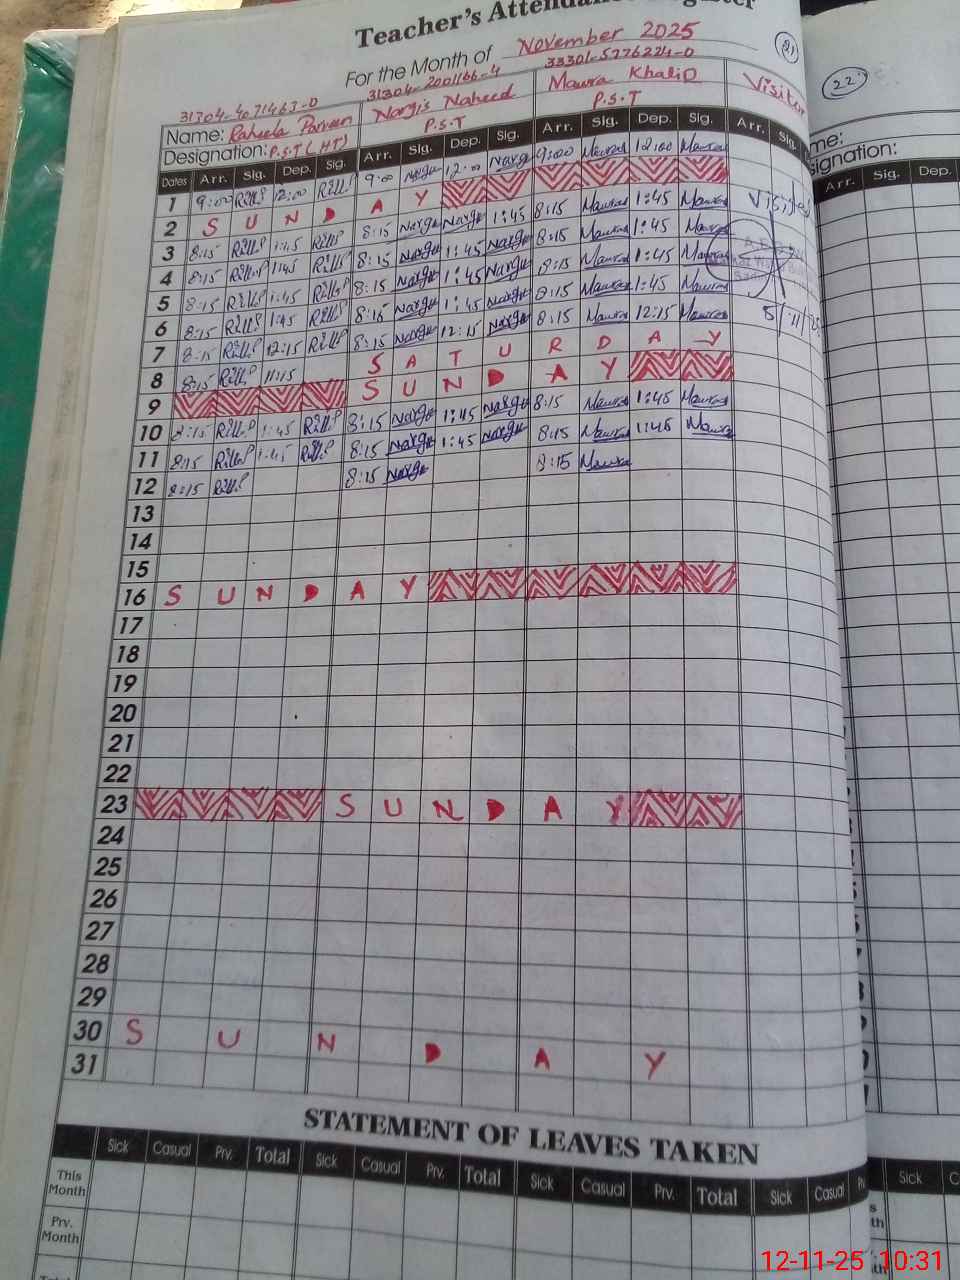 Teacher's Attendance Register
For the Month of November 2025
21
22
31304-4071463-0 31304-2001166-4 33301-5776224-0
Name: Raheela Parveen Nargis Naheed Mawra Khalid Visitor
Designation: P.S.T (HT) P.S.T P.S.T
Dates Arr. Sig. Dep. Sig. Arr. Sig. Dep. Sig. Arr. Sig. Dep. Sig. Arr. Sig.
1 9:00 12:00 9:00 Nargis 12:00 Nargis 9:00 Mawra 12:00 Mawra
2 S U N D A Y
3 8:15 1:45 8:15 Nargis 1:45 Nargis 8:15 Mawra 1:45 Mawra Visited
4 8:15 1:45 8:15 Nargis 1:45 Nargis 8:15 Mawra 1:45 Mawra
5 8:15 1:45 8:15 Nargis 1:45 Nargis 8:15 Mawra 1:45 Mawra
6 8:15 1:45 8:15 Nargis 1:45 Nargis 8:15 Mawra 1:45 Mawra
7 8:15 12:15 8:15 Nargis 12:15 Nargis 8:15 Mawra 12:15 Mawra
8 8:15 11:15 S A T U R D A Y
9 S U N D A Y
10 8:15 1:45 8:15 Nargis 1:45 Nargis 8:15 Mawra 1:45 Mawra
11 8:15 1:45 8:15 Nargis 1:45 Nargis 8:15 Mawra 1:45 Mawra
12 8:15 8:15 Nargis 8:15 Mawra
13
14
15
16 S U N D A Y
17
18
19
20
21
22
23 S U N D A Y
24
25
26
27
28
29
30 S U N D A Y
31
STATEMENT OF LEAVES TAKEN
Sick Casual Prv. Total Sick Casual Prv. Total Sick Casual Prv. Total Sick Casual
This Month
Prv. Month
me:
signation:
Arr. Sig. Dep.
Sick
12-11-25 10:31